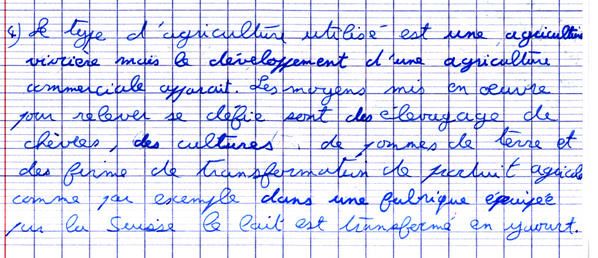 4) Le type d'agriculture utilisé est une agriculture
vivrière mais le développement d'une agriculture
commerciale apparait. Les moyens mis en œuvre
pour relever se défie sont des élevagage de
chèvres, des cultures de pommes de terre et
des firme de transformation de produit agricole
comme par exemple dans une fabrique équipée
par la Suisse le lait est transformé en yaourt.